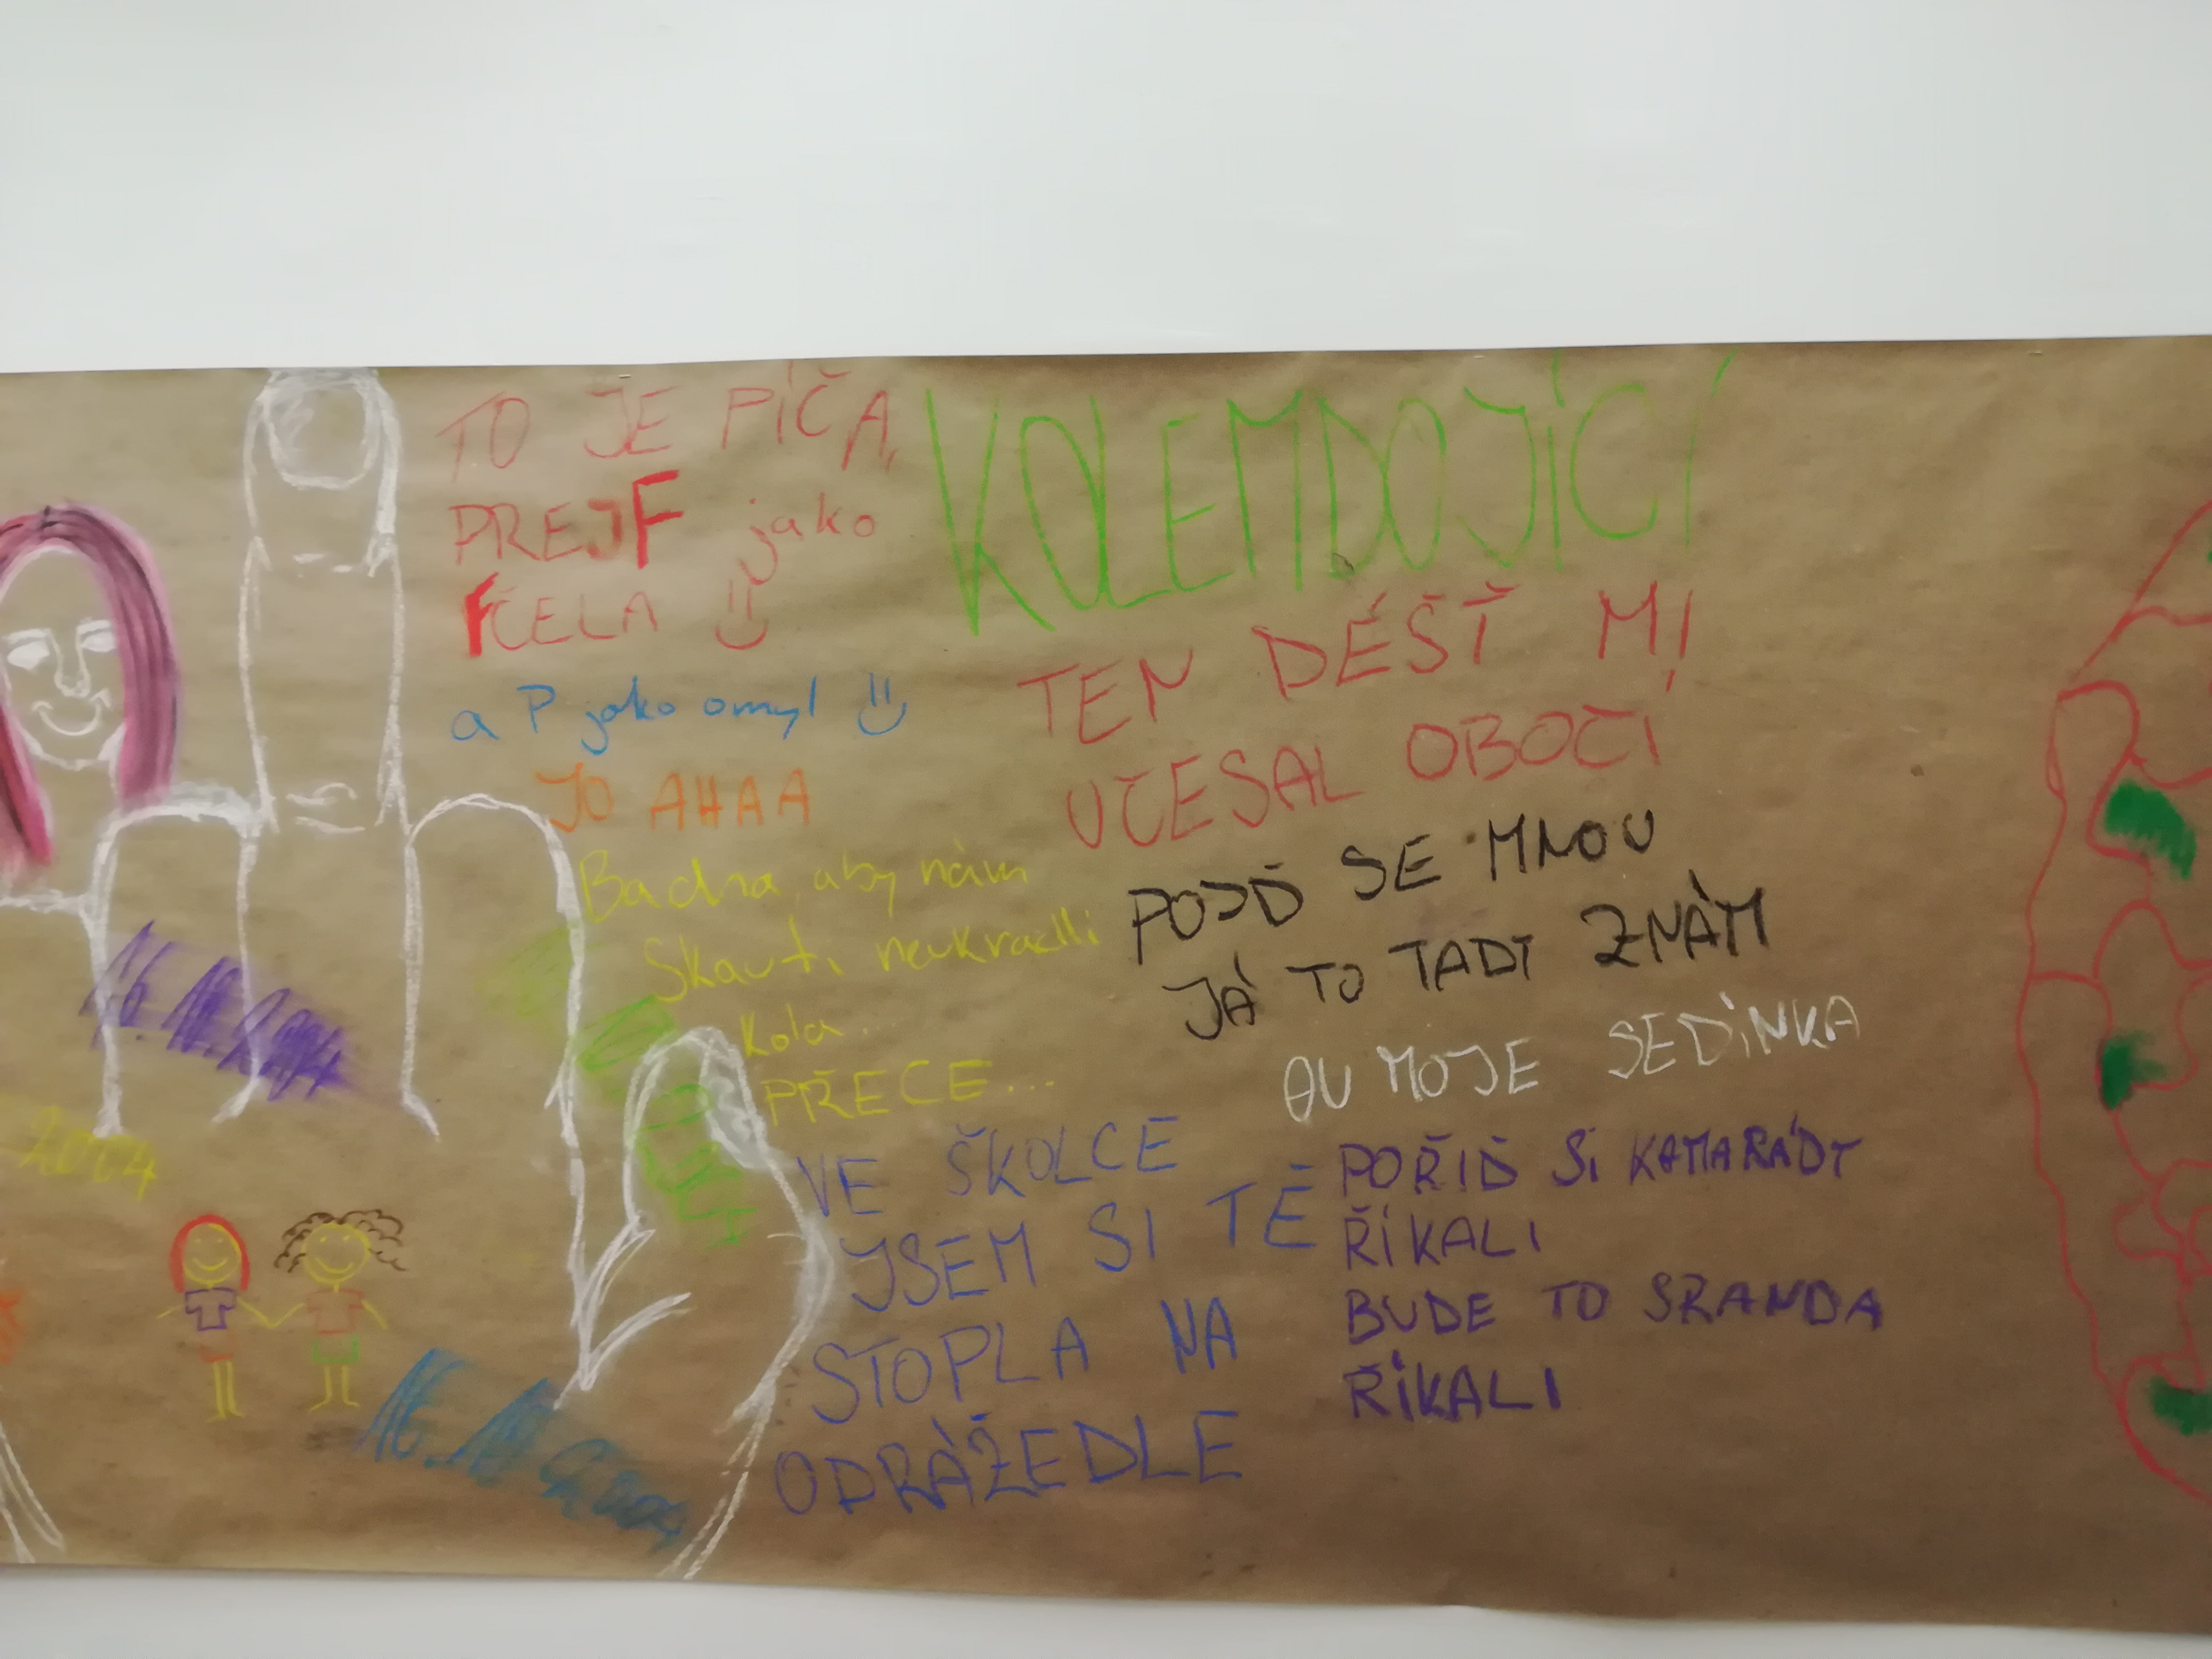 TO JE PÍČA,
PREJF jako
FČELA
a P jako omyl
JO AHAA
Bacha, aby nám
Skauti neukradli
kola...
PŘECE...
VE ŠKOLCE
JSEM SI TĚ
STOPLA NA
ODRÁŽEDLE
KOLEMDOJÍCÍ
TEN DÉŠŤ MI
UČESAL OBOČÍ
POJĎ SE MNOU
JÁ TO TADY ZNÁM
AU MOJE SEDÍNKA
POŘIĎ SI KAMARÁDY
ŘÍKALI
BUDE TO SRANDA
ŘÍKALI